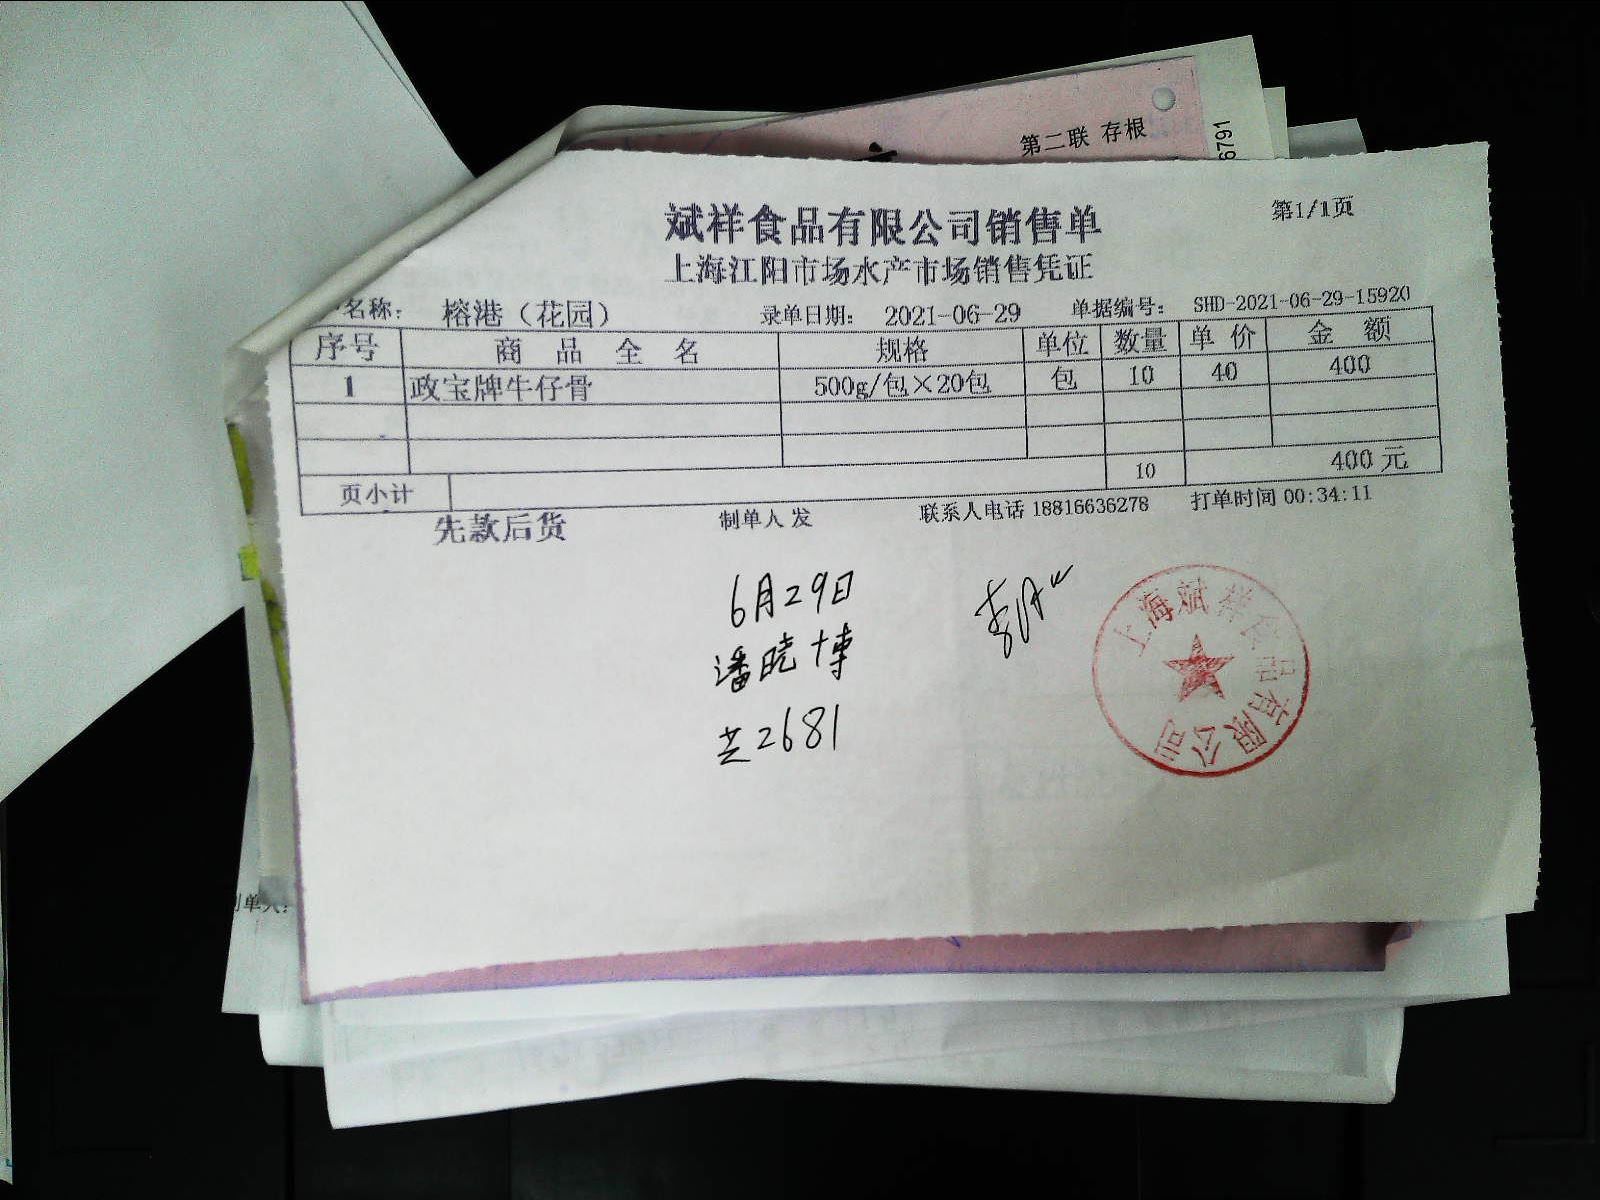 第二联 存根
6791
斌祥食品有限公司销售单
第1/1页
上海江阳市场水产市场销售凭证
名称: 榕港（花园） 录单日期: 2021-06-29 单据编号: SHD-2021-06-29-15920
序号 商品全名 规格 单位 数量 单价 金额
1 政宝牌牛仔骨 500g/包×20包 包 10 40 400
页小计 10 400元
先款后货 制单人 发 联系人电话 18816636278 打单时间 00:34:11
6月29日
潘晓博
2681
上海斌祥食品有限公司
制单人: